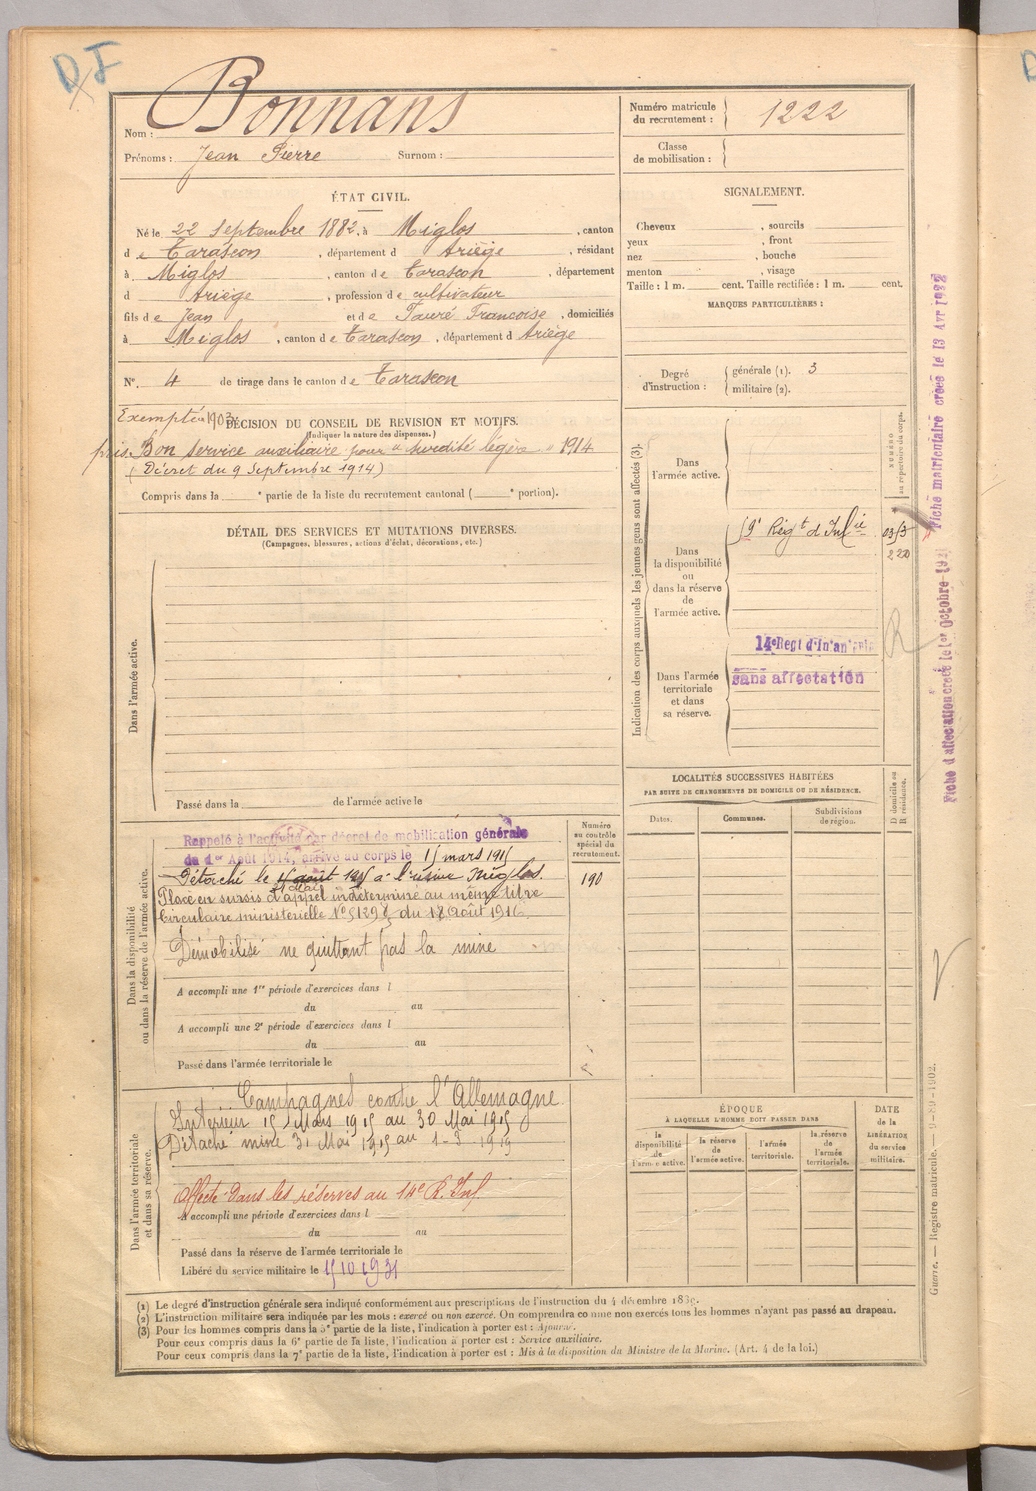 D F
Nom : Bonnans
Prénoms : Jean Pierre Surnom :
Numéro matricule du recrutement : 1222
Classe de mobilisation :
ÉTAT CIVIL.
Né le 22 Septembre 1882, à Miglos, canton
d e Tarascon, département d Ariège, résidant
à Miglos, canton de Tarascon, département
d Ariège, profession de cultivateur
fils de Jean et de Tauré Francoise, domiciliés
à Miglos, canton de Tarascon, département d Ariège
N°. 4 de tirage dans le canton de Tarascon
SIGNALEMENT.
Cheveux , sourcils
yeux , front
nez , bouche
menton , visage
Taille : 1 m. cent. Taille rectifiée : 1 m. cent.
MARQUES PARTICULIÈRES :
Degré d'instruction : générale (1). 3
militaire (2).
Exempté 1903
DÉCISION DU CONSEIL DE REVISION ET MOTIFS.
(Indiquer la nature des dispenses.)
pris Bon service auxiliaire pour "surdité légère" 1914
(Décret du 9 Septembre 1914)
Compris dans la e partie de la liste du recrutement cantonal ( e portion).
DÉTAIL DES SERVICES ET MUTATIONS DIVERSES.
(Campagnes, blessures, actions d'éclat, décorations, etc.)
Dans l'armée active.
Passé dans la de l'armée active le
Indication des corps auxquels les jeunes gens sont affectés (3).
Dans l'armée active.
NUMÉRO au répertoire du corps.
Dans la disponibilité ou dans la réserve de l'armée active.
Régt d'Infie
220
Dans l'armée territoriale et dans sa réserve.
14e Regt d'Infanterie
sans affectation
LOCALITÉS SUCCESSIVES HABITÉES
PAR SUITE DE CHANGEMENTS DE DOMICILE OU DE RÉSIDENCE.
Dates. Communes. Subdivisions de région. D domicile ou R résidence.
Dans la disponibilité ou dans la réserve de l'armée active.
Numéro au contrôle spécial du recrutement.
190
Rappelé à l'activité par décret de mobilisation générale
du 1er Août 1914, arrivé au corps le 15 mars 1915
Détaché le 31 Mai 1915 à l'usine Miglos.
Placé en sursis d'appel indéterminé au même titre
Circulaire ministerielle du 18 Août 1916
Démobilisé ne quittant pas la mine
A accompli une 1re période d'exercices dans l
du au
A accompli une 2e période d'exercices dans l
du au
Passé dans l'armée territoriale le
Dans l'armée territoriale et dans sa réserve.
Campagnes contre l'Allemagne
Intérieur 15 Mars 1915 au 30 Mai 1915
Détaché mine 31 Mai 1915 au 1919
Affecté dans les réserves au 14e R. Inf.
A accompli une période d'exercices dans l
du au
Passé dans la réserve de l'armée territoriale le
Libéré du service militaire le 15 10 1931
ÉPOQUE
À LAQUELLE L'HOMME DOIT PASSER DANS
la disponibilité de l'armée active.
la réserve de l'armée active.
l'armée territoriale.
la réserve de l'armée territoriale.
DATE de la LIBÉRATION du service militaire.
(1) Le degré d'instruction générale sera indiqué conformément aux prescriptions de l'instruction du 4 décembre 1889.
(2) L'instruction militaire sera indiquée par les mots : exercé ou non exercé. On comprendra comme non exercés tous les hommes n'ayant pas passé au drapeau.
(3) Pour les hommes compris dans la 5e partie de la liste, l'indication à porter est : Ajourné.
Pour ceux compris dans la 6e partie de la liste, l'indication à porter est : Service auxiliaire.
Pour ceux compris dans la 7e partie de la liste, l'indication à porter est : Mis à la disposition du Ministre de la Marine. (Art. 4 de la loi.)
Fiche matriculaire créée le 13 Avr 1932
Fiche d'affectation créée le 1er Octobre
Guerre. — Registre matricule. — 9-89-1902.